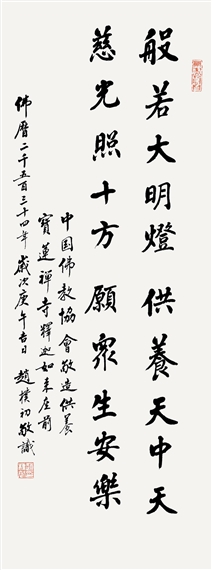 般若大明燈 供養天中天
慈光照十方 願眾生安樂
中国佛教協會敬造供養
寶蓮禪寺釋迦如来座前
佛曆二千五百三十四年歲次庚午吉日 趙樸初敬識